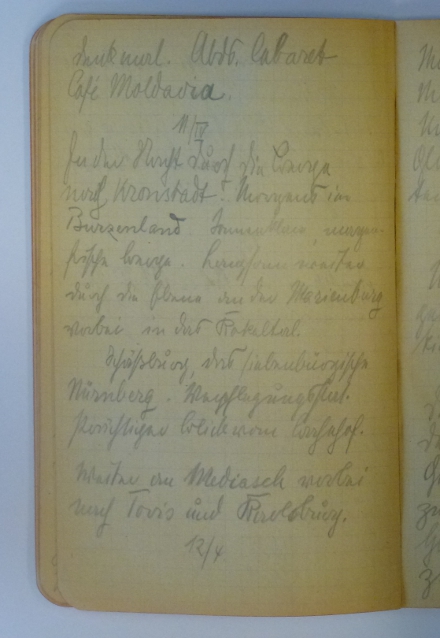 denkmal. Abds. Cabaret
Café Moldavia.
11/IV
In der Nacht durch die
nach Kronstadt! Morgens im
Burzenland
. Langsam weiter
durch die Ebene an der Marienburg
vorbei in das Kokeltal.
Schäßburg, das siebenbürgische
Nürnberg. Verpflegungshalt.
Prächtiger Blick vom Bahnhof.
Weiter an Mediasch vorbei
nach Tövis und Karlsburg.
12/4